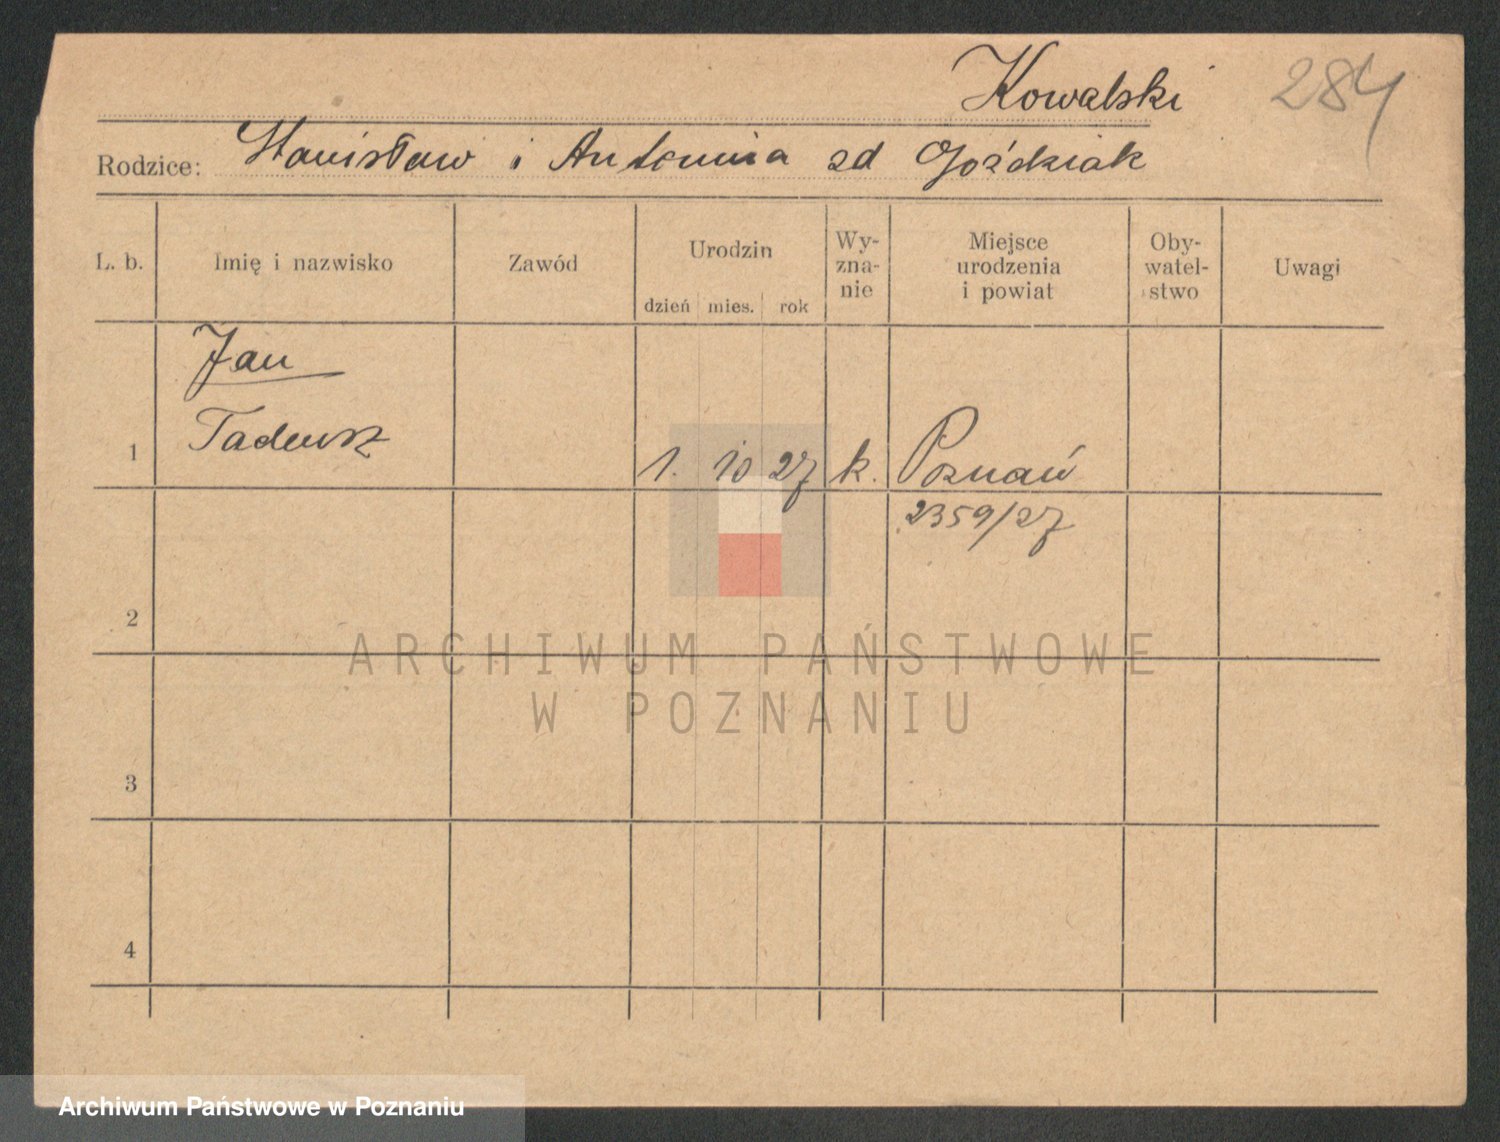 Kowalski 284
Rodzice: Stanisław i Antonina zd Goździak
L. b. Imię i nazwisko Zawód Urodzin dzień mies. rok Wy-zna-nie Miejsce urodzenia i powiat Oby-watel-stwo Uwagi
Jan
Tadeusz
1 1. 10 27 k. Poznań
2359/27
2
ARCHIWUM PAŃSTWOWE
W POZNANIU
3
4
Archiwum Państwowe w Poznaniu